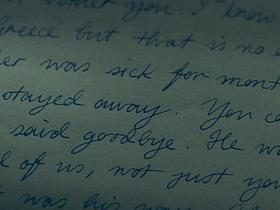 bother you. I know
Greece but that is no e
er was sick for mont
stayed away. You co
said goodbye. He wa
l of us, not just you
was his way